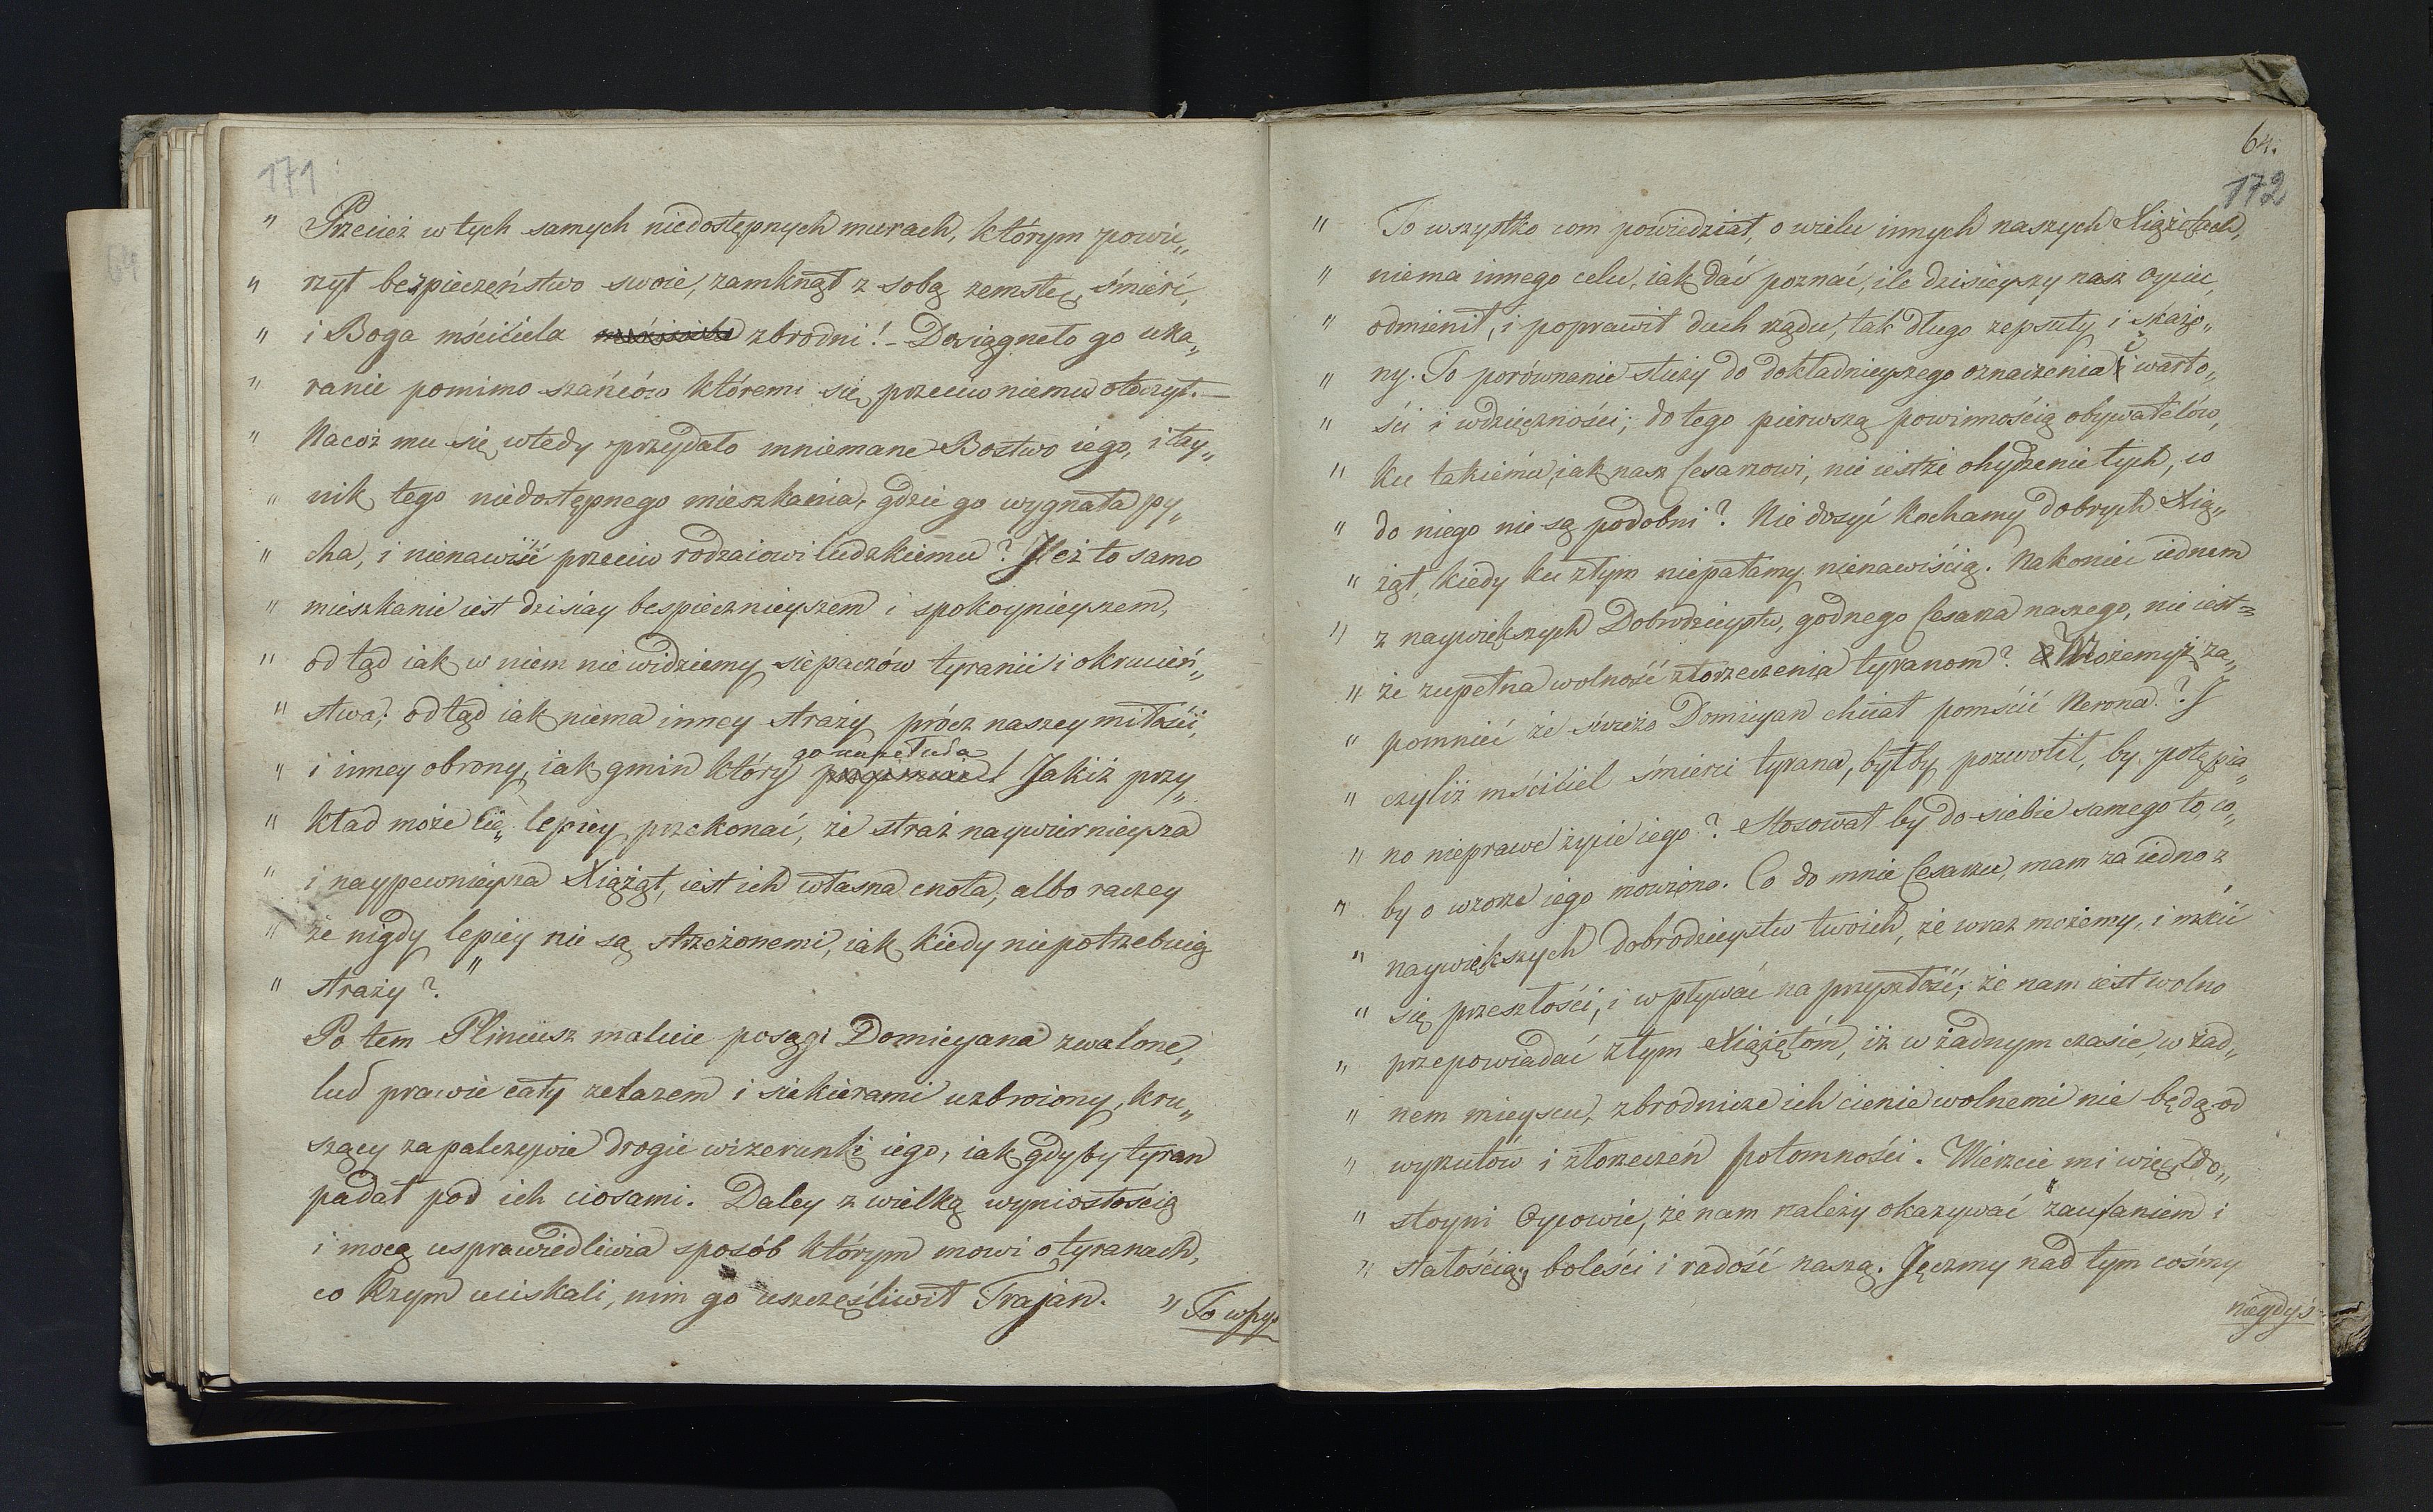 171
" Przecież w tych samych niedostępnych murach, którym powie„
" rzył bezpieczeństwo swoie, zamknął z sobą zemstę, śmierć,
" i Boga mściciela mściciela zbrodni! – Dosiągneło go uka„
" ranie pomimo szańców któremi się przeciw niemu otoczył. —
" Nacóż mu się wtedy przydało mniemane Bostwo iego, i tay„
" nik tego niedostępnego mieszkania, gdzie go wygnała py„
" cha, i nienawiść przeciw rodzaiowi ludzkiemu? Jeż to samo
" mieszkanie iest dzisiay bespiecznieyszem i spokoynieyszem,
" od tąd iak w niem nie widziemy siepaczów tyranii i okrucień„
" stwa; od tąd iak niema inney straży prócz naszey miłości,
go napełnia
" i inney obrony, iak gmin który ! Jakiż przy„
" kład może cię lepiey przekonać, że straż naywiernieysza
" i naypewnieysza Xiążąt, iest ich własna cnota, albo raczey
" że nigdy lepiey nie są strzeżonemi, iak kiedy niepotrzebuią
" straży? "
Po tem Pliniusz maluie posągi Domicyana zwalone,
lud prawie cały żelazem i siekierami uzbroiony, kru„
szący zapalczywie drogie wizerunki iego, iak gdyby tyran
padał pod ich ciosami. Daley z wielką wyniosłością
i mocą usprawiedliwia sposób którym mowi o tyranach,
co Rzym uciskali, nim go uszczęśliwił Trajan. " To wszy„
64.
172
" To wszystko com powiedział, o wielu innych naszych Xiążętach,
" niema innego celu, iak dać poznać, ile dzisieyszy nasz Oyciec,
" odmienił, i poprawił duch rządu, tak długo zepsuty i skażo„
" ny. To porównanie służy do dokładnieyszego oznaczenia i warto„
" ści i wdzięczności; do tego pierwszą powinnością obywatelów,
" ku takiemu, iak nasz Cesarzowi, nie iestże ohydzenie tych, co
" do niego nie są podobni? Nie dosyć kochamy dobrych Xią„
" żąt, kiedy ku złym niepałamy nienawiścią. Nakoniec iednem
" z naywiększych Dobrodzieystw, godnego Cesarza naszego, nie iest=
" że zupełna wolność złorzeczenia tyranom? Możemyż za„
" pomnieć że świeżo Domicyan chciał pomścić Nerona? I
" czyliż mściciel śmierci tyrana, byłby pozwolił, by potępia„
" no nieprawe życie iego? Stosował by do siebie samego to, co„
" by o wzorze iego mowiono. Co do mnie Cesarzu, mam za iedno z
" naywiększych dobrodzieystw twoich, że wraz możemy, i mścić
" się przeszłości, i wpływać na przyszłość; że nam iest wolno
" przepowiadać złym Xiążętom, iż w żadnym czasie, w żad„
" nem mieyscu, zbrodnicze ich cienie wolnemi nie będą od
" wyrzutów i złorzeczeń potomności. Wierzcie mi więc do„
" stoyni Oycowie, że nam należy okazywać zaufaniem i
" stałością, boleści i radość naszą. Jęczmy nad tym cośmy
niegdyś